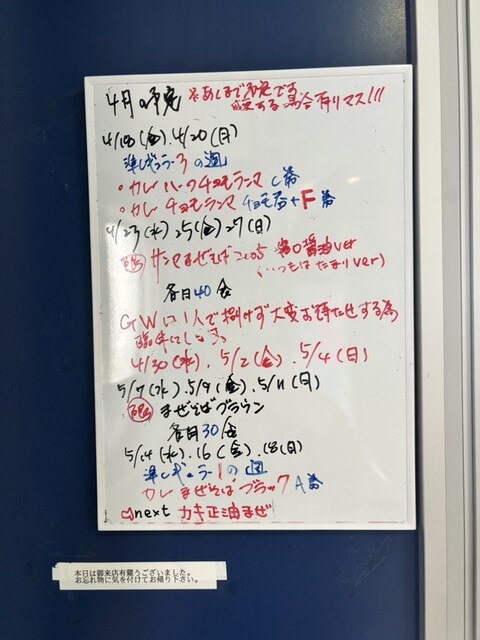 4月の予定 ※あくまで予定です
変更する場合有りマス!!!
4/18(金).4/20(日)
準レギュラー3の週
・カレーハーフチョモランマ C券
・カレーチョモランマ チョモ券+F券
4/23(水).25(金).27(日)
限 サンマまぜそば2005 醤油ver
(いつもはたまりver)
各日40食
GWに1人で捌けず大変お待たせする為
臨休にします。
4/30(水). 5/2(金). 5/4(日)
5/7(水).5/9(金).5/11(日)
限 まぜそばブラウン
各日30食
5/14(水).16(金).18(日)
準レギュラー1の週
カレーまぜそばブラック A券
⇨next カキ正油まぜ
本日は御来店有難うございました。
お忘れ物に気を付けてお帰り下さい。